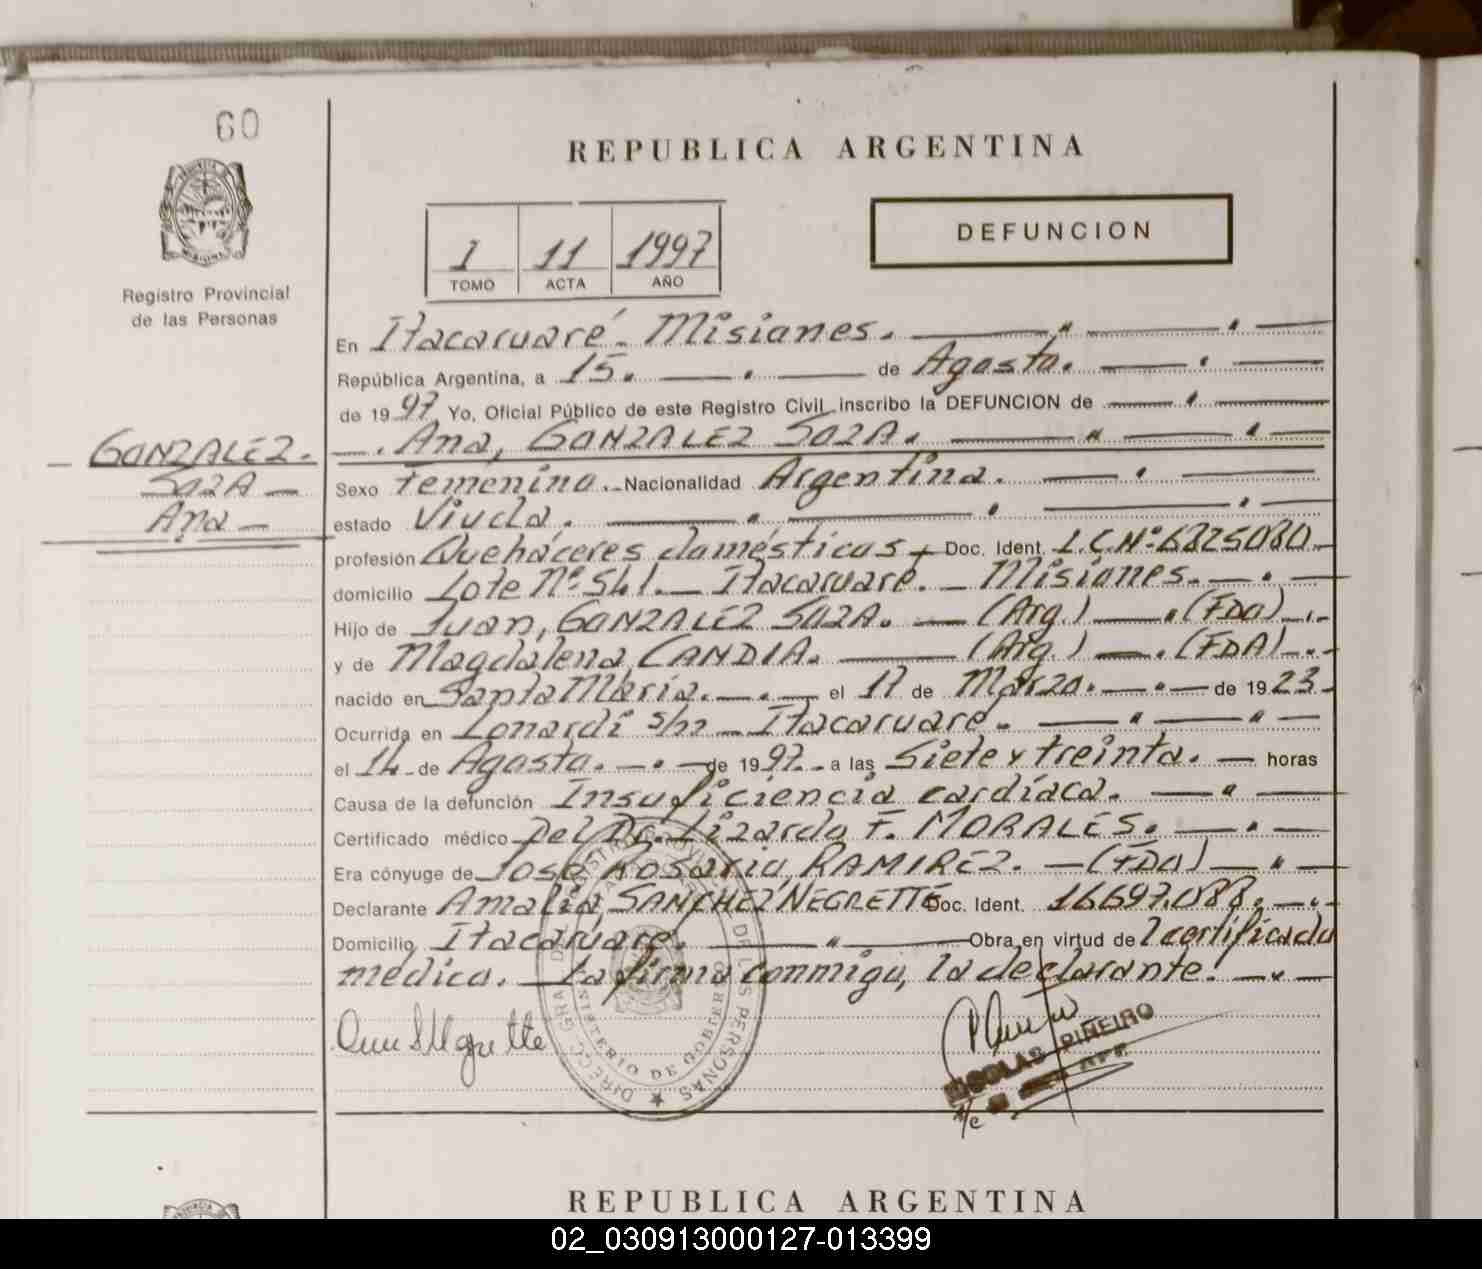 60
REPUBLICA ARGENTINA
DEFUNCION
1 11 1997
TOMO ACTA AÑO
Registro Provincial
de las Personas
En Itacaruaré - Misiones.
República Argentina, a 15. de Agosto.
de 1997 Yo, Oficial Público de este Registro Civil inscribo la DEFUNCION de
Ana, GONZALEZ SOZA.
GONZALEZ.
SOZA
Ana
Sexo Femenino. Nacionalidad Argentina.
estado Viuda.
profesión Quehaceres domésticos Doc. Ident. L.C.Nº 6825080
domicilio Lote Nº 541. Itacaruaré. Misiones.
Hijo de Juan, GONZALEZ SOZA. (Arg.) (FDO)
y de Magdalena CANDIA. (Arg.) (FDA)
nacido en Santa María. el 17 de Marzo. de 1923
Ocurrida en Lonardi s/n Itacaruaré.
el 14 de Agosto. de 1997 a las Siete y treinta. horas
Causa de la defunción Insuficiencia cardíaca.
Certificado médico Del Dr. Lizardo F. MORALES.
Era cónyuge de José Rosario, RAMIREZ. (FDO)
Declarante Amalia, SANCHEZ NEGRETTE Doc. Ident. 16.697.088.
Domicilio Itacaruaré. Obra en virtud de 1 certificado
médico. La firma conmigo, la declarante.
NICOLAS PIÑEIRO
DE LAS PERSONAS
MINISTERIO DE GOBIERNO
REPUBLICA ARGENTINA
02_030913000127-013399